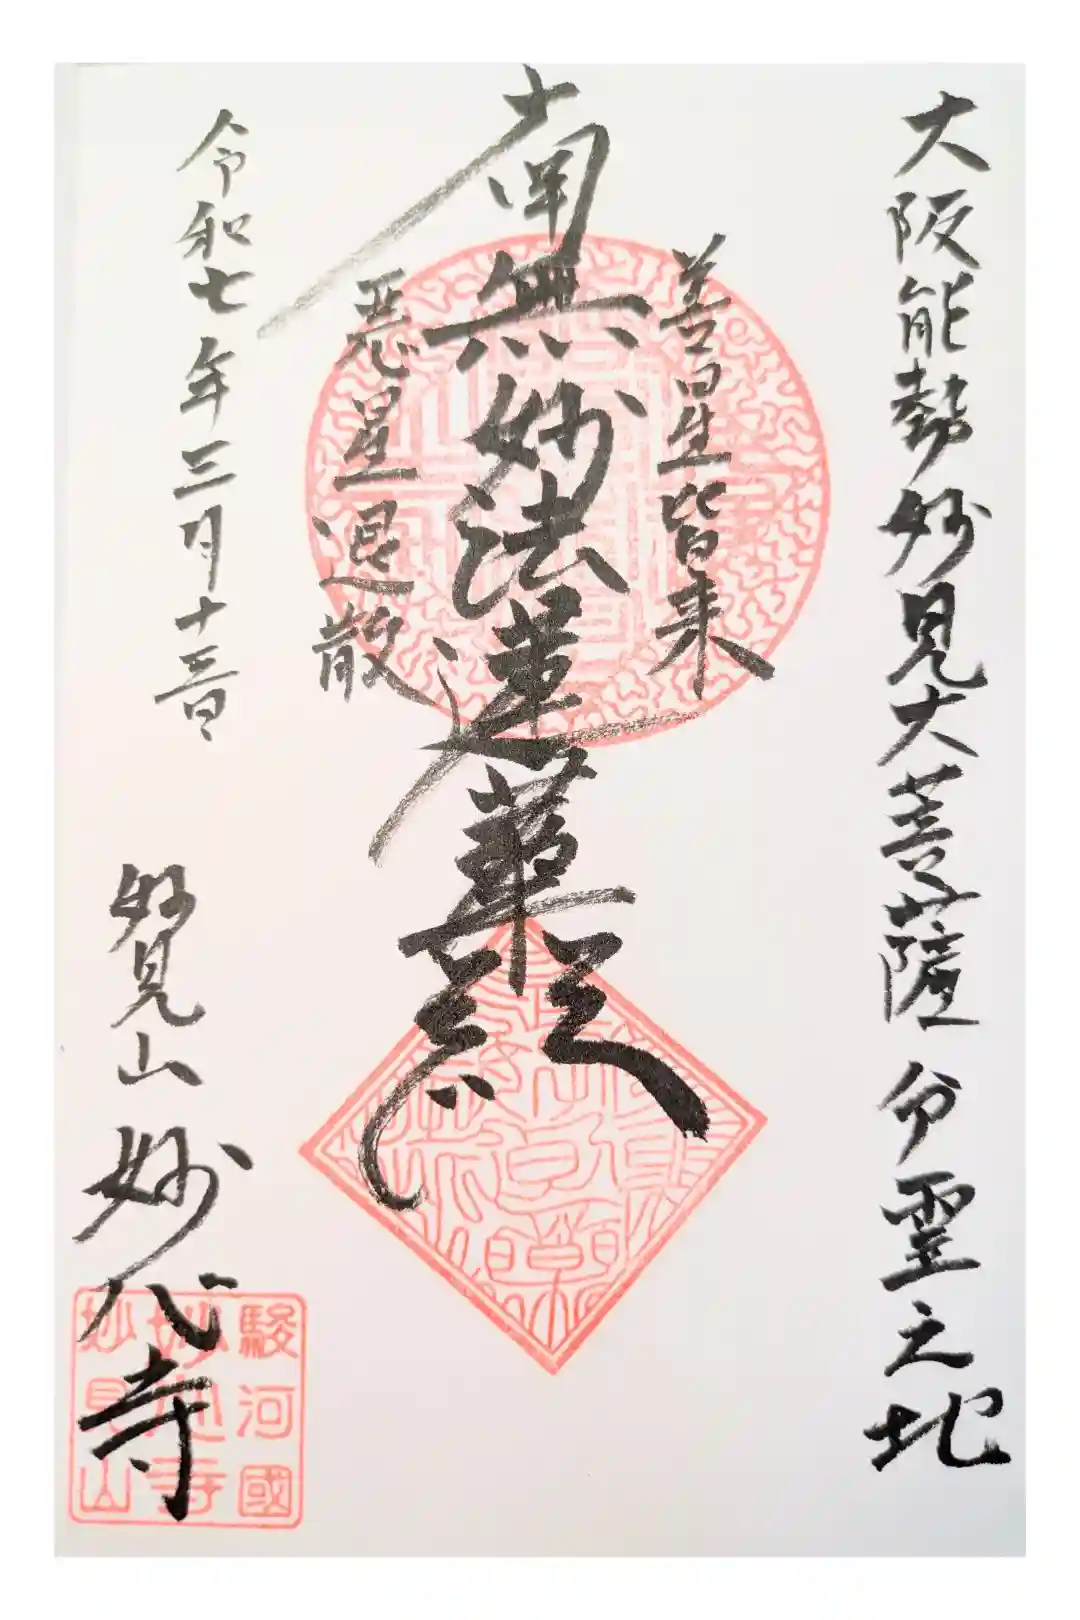 大阪能勢妙見大菩薩分霊之地
善星皆来
南無妙法蓮華経
悪星退散
令和七年三月十三日
妙見山
妙 寺
駿河國
妙見山